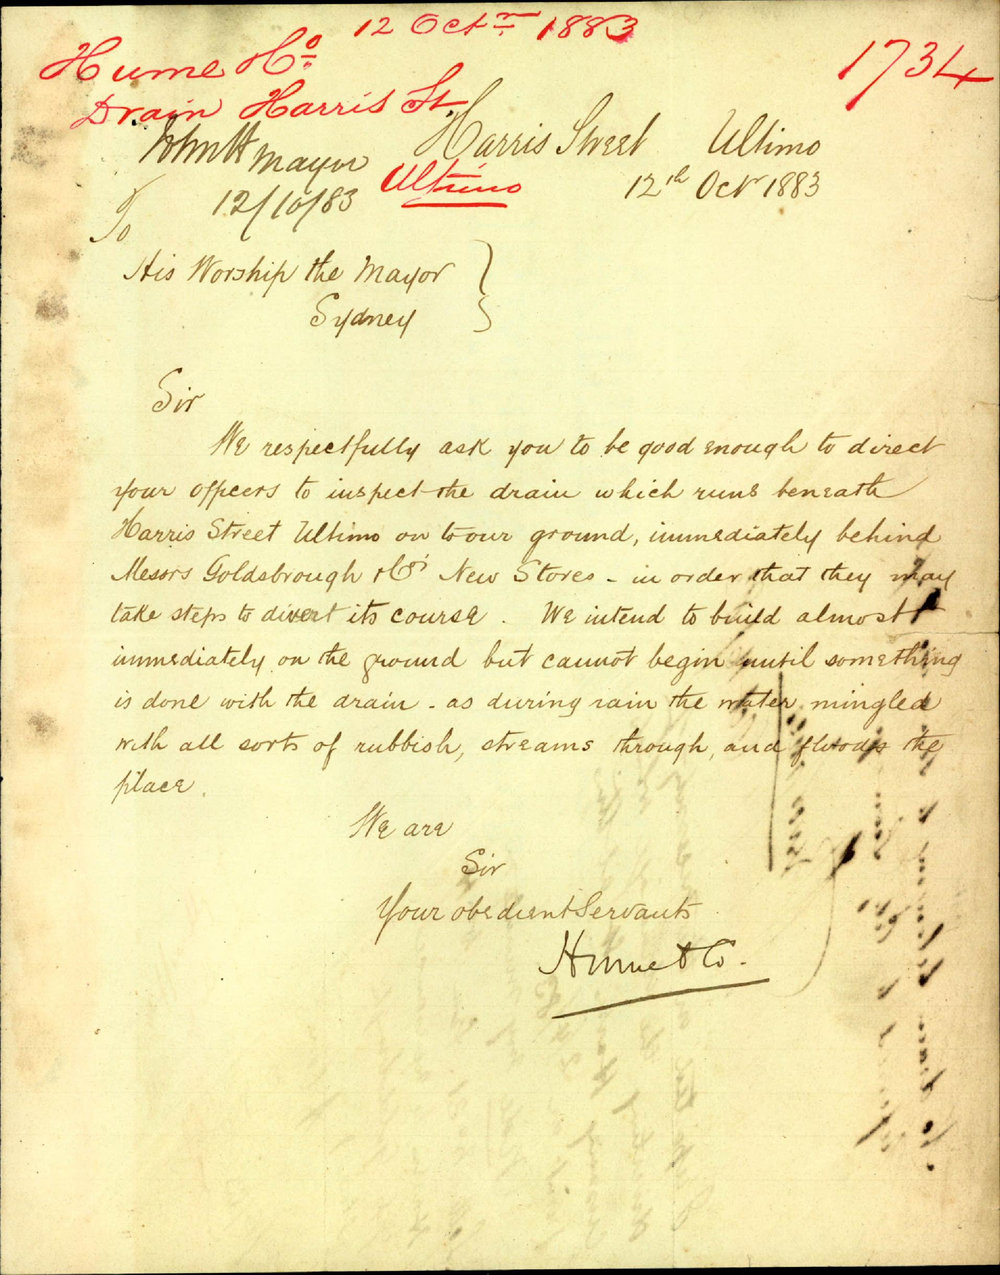 12 Octr 1883
Hume & Co
1734
Drain Harris St.
Harris Street Ultimo
John H
Mayor
Ultimo
12th Octr 1883
12/10/83
To
His Worship the Mayor
Sydney
Sir
We respectfully ask you to be good enough to direct
your officers to inspect the drain which runs beneath
Harris Street Ultimo on to our ground, immediately behind
Messrs Goldsbrough & Co's New Stores - in order that they may
take steps to divert its course. We intend to build almost
immediately on the ground but cannot begin until something
is done with the drain - as during rain the water mingled
with all sorts of rubbish, streams through, and floods the
place.
We are
Sir
Your obedient Servants
Hume & Co.